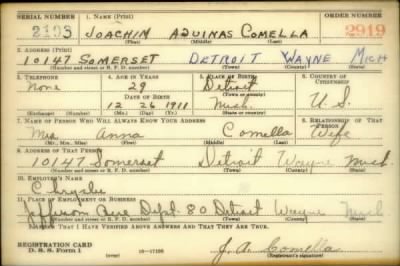 SERIAL NUMBER 1. NAME (Print) ORDER NUMBER
2193 JOACHIM AQUINAS COMELLA 2919
(First) (Middle) (Last)
2. ADDRESS (Print)
10147 SOMERSET DETROIT WAYNE MICH
(Number and street or R. F. D. number) (Town) (County) (State)
3. TELEPHONE 4. AGE IN YEARS 5. PLACE OF BIRTH 6. COUNTRY OF CITIZENSHIP
None 29 Detroit
DATE OF BIRTH (Town or county)
12 26 1911 Mich. U. S.
(Exchange) (Number) (Mo.) (Day) (Yr.) (State or country)
7. NAME OF PERSON WHO WILL ALWAYS KNOW YOUR ADDRESS 8. RELATIONSHIP OF THAT PERSON
Mrs Anna Comella Wife
(Mr., Mrs., Miss) (First) (Middle) (Last)
9. ADDRESS OF THAT PERSON
10147 Somerset Detroit Wayne Mich.
(Number and street or R. F. D. number) (Town) (County) (State)
10. EMPLOYER'S NAME
Chrysler
11. PLACE OF EMPLOYMENT OR BUSINESS
Jefferson Ave Dept. 80 Detroit Wayne Mich
(Number and street or R. F. D. number) (Town) (County) (State)
I AFFIRM THAT I HAVE VERIFIED ABOVE ANSWERS AND THAT THEY ARE TRUE.
REGISTRATION CARD J. A. Comella
D. S. S. Form 1 (over) 16—17105 (Registrant's signature)